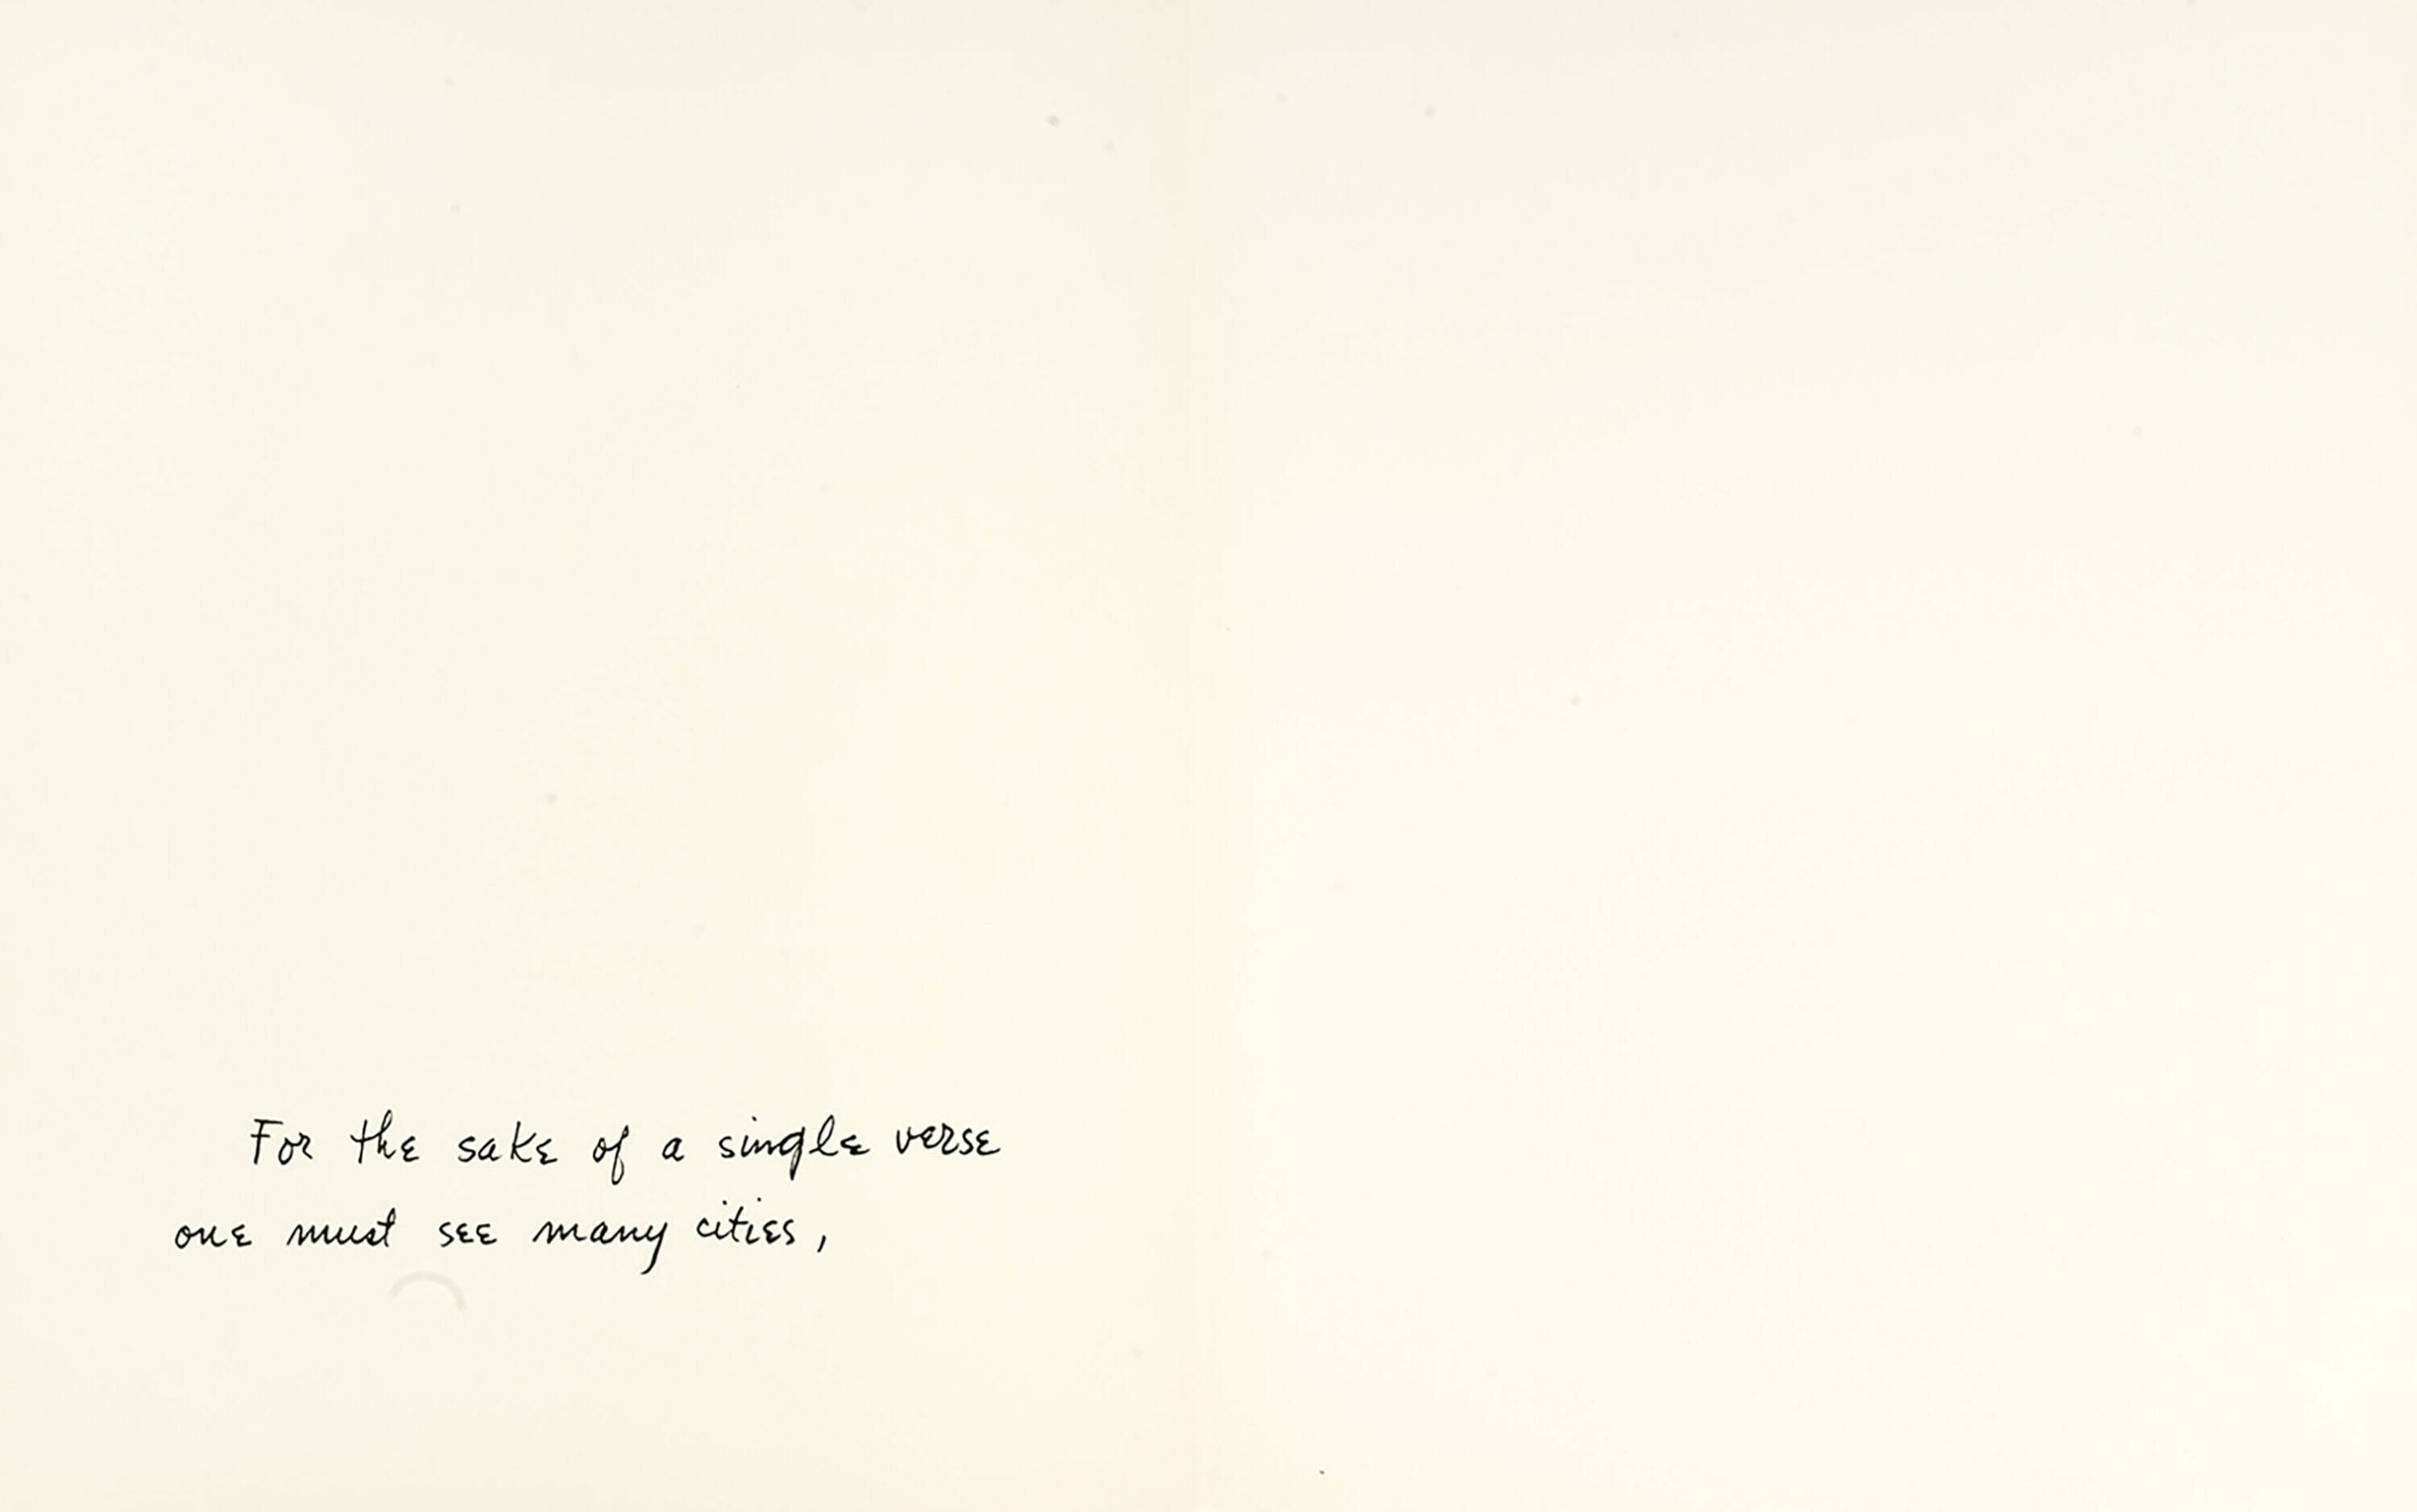 For the sake of a single verse
one must see many cities,